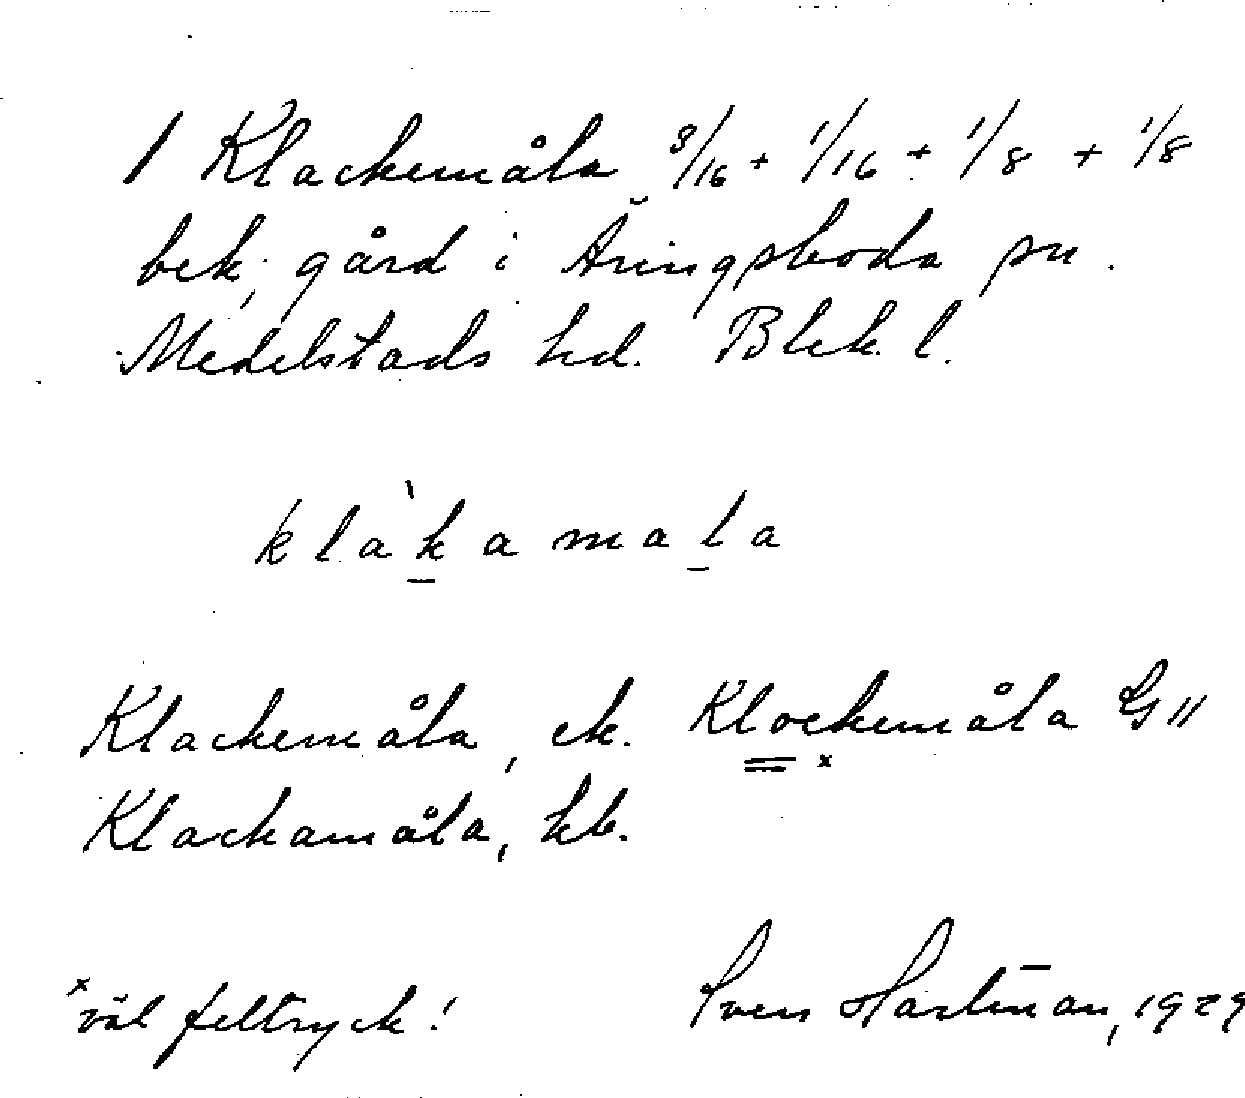 1 Klackemåla 3/16 + 1/16 + 1/8 + 1/8
bek. gård i Åringsboda sn.
Medelstads hd. Blek. l.
kla`kamala
Klackemåla, ek. Klockemåla G 11
x
Klackamåla, kb.
x väl feltryck!
Sven Hartman, 1929